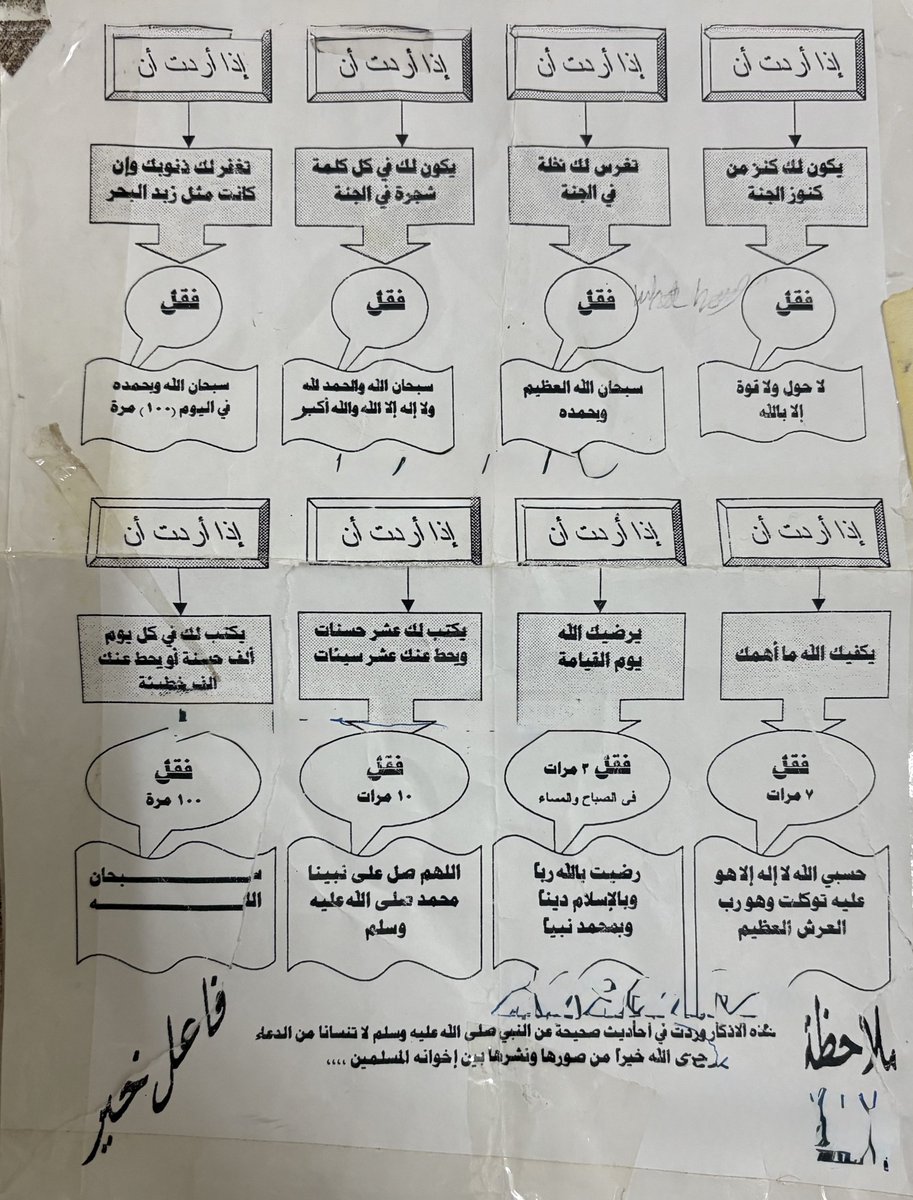 إذا أردت أن
يكون لك كنز من
كنوز الجنة
فقل
لا حول ولا قوة
إلا بالله
إذا أردت أن
تغرس لك نخلة
في الجنة
فقل
سبحان الله العظيم
وبحمده
إذا أردت أن
يكون لك في كل كلمة
شجرة في الجنة
فقل
سبحان الله والحمد لله
ولا إله إلا الله والله أكبر
إذا أردت أن
تغفر لك ذنوبك وإن
كانت مثل زبد البحر
فقل
سبحان الله وبحمده
في اليوم (١٠٠) مرة
إذا أردت أن
يكفيك الله ما أهمك
فقل
٧ مرات
حسبي الله لا إله إلا هو
عليه توكلت وهو رب
العرش العظيم
إذا أردت أن
يرضيك الله
يوم القيامة
فقل ٣ مرات
في الصباح والمساء
رضيت بالله ربا
وبالإسلام دينا
وبمحمد نبيا
إذا أردت أن
يكتب لك عشر حسنات
ويحط عنك عشر سيئات
فقل
١٠ مرات
اللهم صل على نبينا
محمد صلى الله عليه
وسلم
إذا أردت أن
يكتب لك في كل يوم
ألف حسنة أو يحط عنك
ألف خطيئة
فقل
١٠٠ مرة
سبحان
الله
ملاحظة
هذه الاذكار وردت في أحاديث صحيحة عن النبي صلى الله عليه وسلم لا تنسانا من الدعاء
جزى الله خيرا من صورها ونشرها بين إخوانه المسلمين ....
فاعل خير